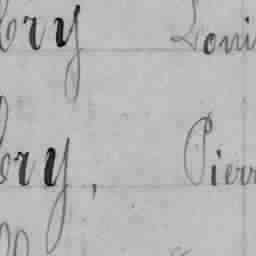 bry Loui
bry, Pierr